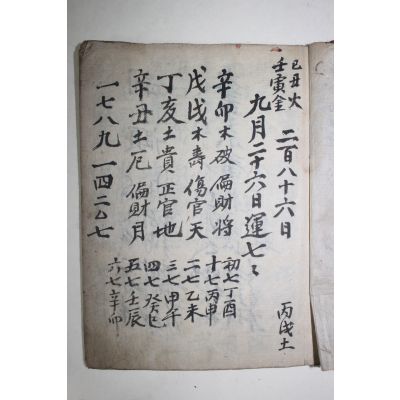 己丑火
壬寅金
二百八十六日
丙戌土
九月二十六日運七〻
辛卯木破偏財将
戊戌木壽傷官天
丁亥土貴正官地
辛丑土厄偏財月
初七丁酉
十七丙申
二七乙未
三七甲午
四七癸巳
五七壬辰
六七辛卯
一七八九一四二〇七